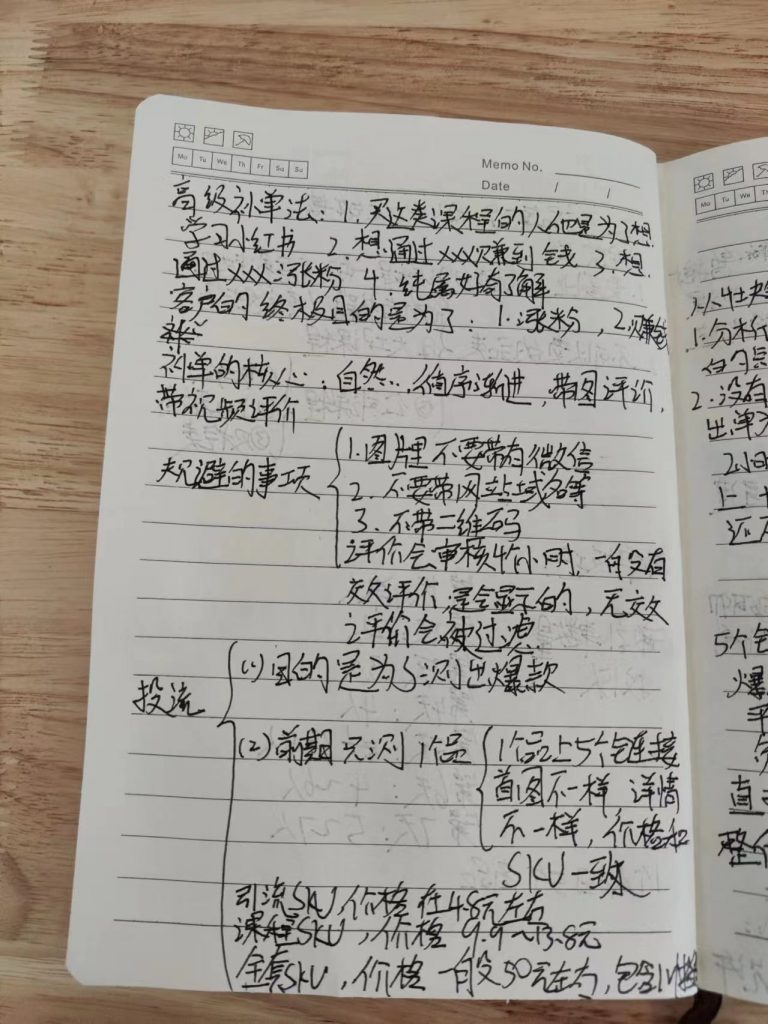 Mo Tu We Th Fr Sa Su
Memo No.
Date / /
高级补单法：1. 买这类课程的人他是为了想
学习小红书 2. 想通过XXX赚到钱 3. 想
通过XXX涨粉 4. 纯属好奇了解
客户的终极目的是为了：1. 涨粉，2. 赚钱
补单的核心：自然..，循序渐进，带图评价，
带视频评价
规避的事项
1. 图片里不要带有微信
2. 不要带网站域名等
3. 不带二维码
评价会审核4个小时，一般有
效评价，是会显示的，无效
评价会被过滤
投流
(1) 目的是为了测出爆款
(2) 前期只测1个品
1个品上5个链接
首图不一样 详情
不一样，价格和
SKU一致
引流SKU，价格在4.8元左右
课程SKU，价格 9.9~13.8元
全套SKU，价格一般50元左右，包含
Mo Tu We Th
1. 分析
2. 没有
出单
2小时
5个
爆
平
直
整个